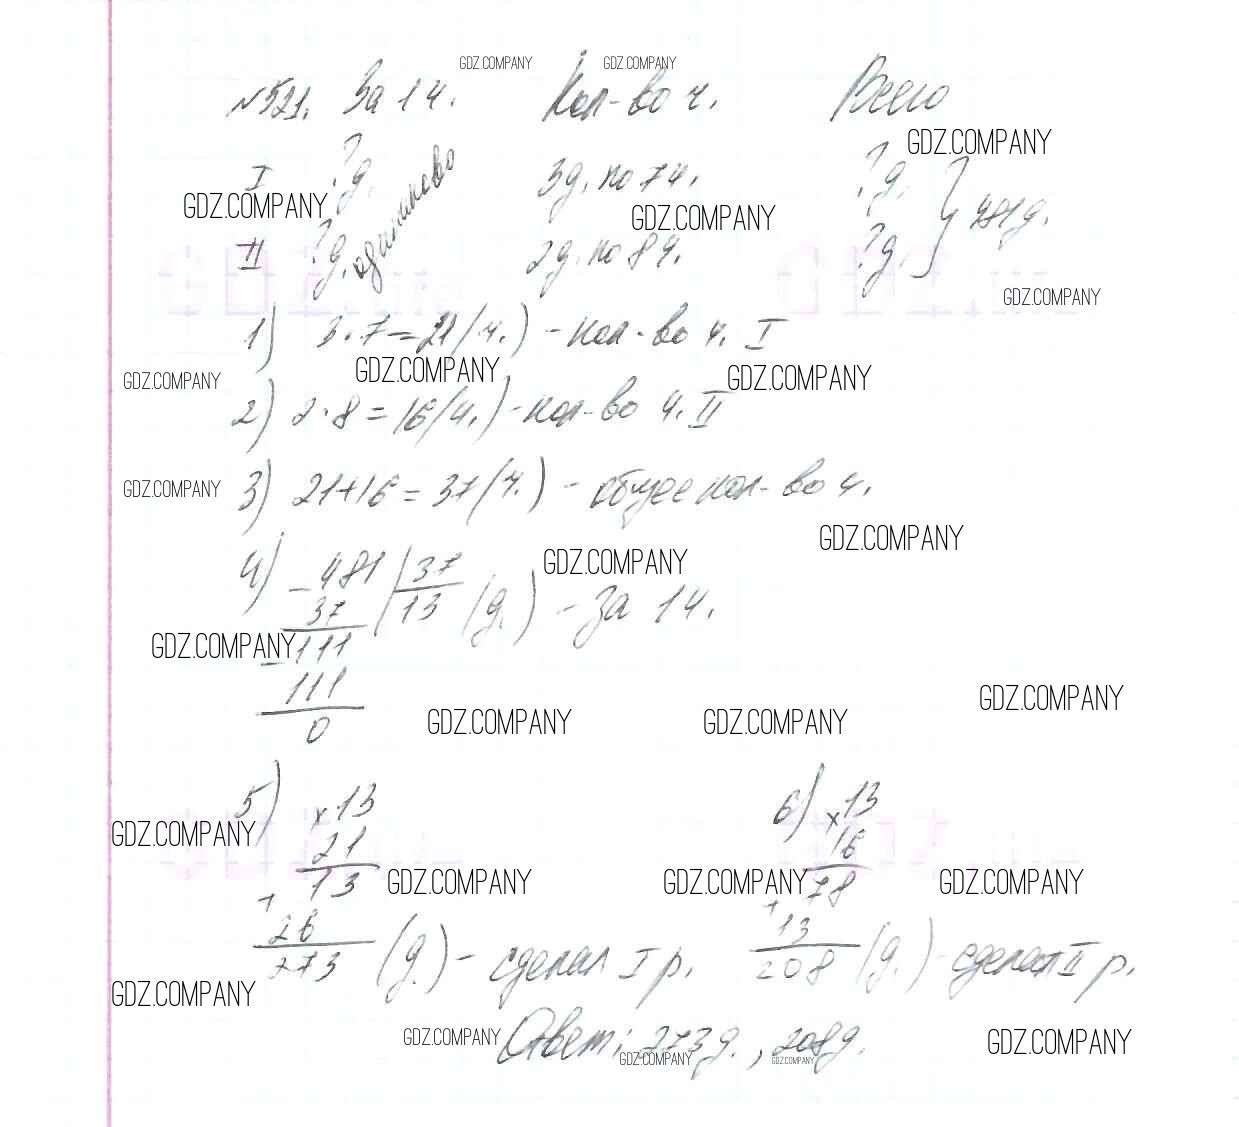 GDZ.COMPANY GDZ.COMPANY
№521. За 1 ч. Кол-во ч. Всего
GDZ.COMPANY
I ? д. одинаково 3 д. по 7 ч. ? д. } 481 д.
GDZ.COMPANY GDZ.COMPANY
II ? д. 2 д. по 8 ч. ? д.
GDZ.COMPANY
1) 3 · 7 = 21 (ч.) - кол-во ч. I
GDZ.COMPANY GDZ.COMPANY GDZ.COMPANY
2) 2 · 8 = 16 (ч.) - кол-во ч. II
GDZ.COMPANY
3) 21 + 16 = 37 (ч.) - общее кол-во ч.
GDZ.COMPANY
GDZ.COMPANY
4) - 481 | 37
37 | 13 (д.) - за 1 ч.
GDZ.COMPANY - 111
111
GDZ.COMPANY
0 GDZ.COMPANY GDZ.COMPANY
5) × 13 6) × 13
GDZ.COMPANY 21 16
+ 13 GDZ.COMPANY GDZ.COMPANY + 78 GDZ.COMPANY
26 13
273 (д.) - сделал I р. 208 (д.) - сделал II р.
GDZ.COMPANY
GDZ.COMPANY Ответ: 273 д., 208 д. GDZ.COMPANY
GDZ.COMPANY GDZ.COMPANY